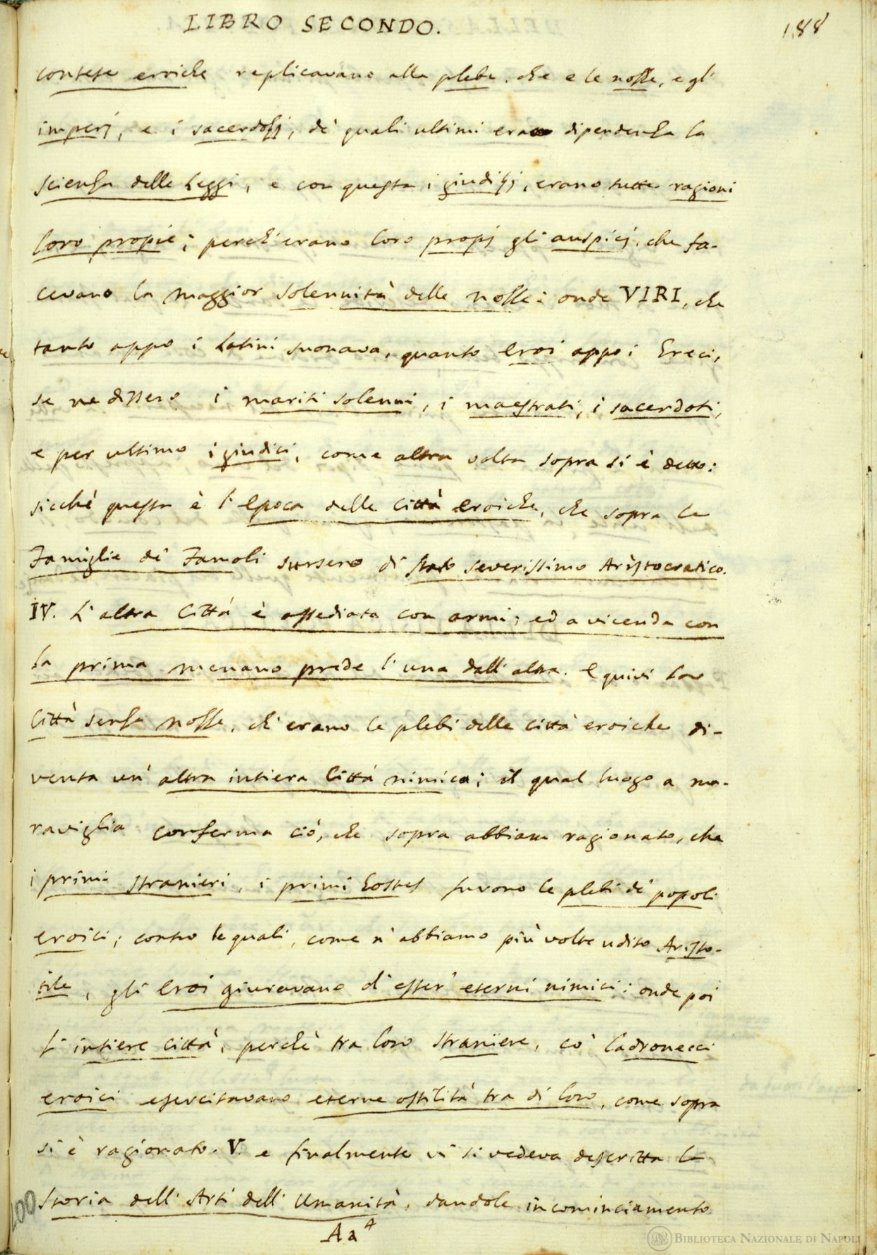 LIBRO SECONDO.
188
contese eroiche replicavano alla plebe, che e le nozze, e gl'
imperj, e i sacerdozj, de' quali ultimi era dipendenza la
scienza delle Leggi, e con questa i giudizj, erano tutte ragioni
loro propie; perch'erano loro propj gli auspicj, che fa-
cevano la maggior solennità delle nozze: onde VIRI, che
tanto appo i Latini suonava, quanto Eroi appo i Greci,
se ne dissero i mariti solenni, i maestrati, i sacerdoti,
e per ultimo i giudici, come altra volta sopra si è detto:
sicchè questa è l'epoca delle Città eroiche, che sopra le
Famiglie de' Famoli sursero di stato severissimo Aristocratico.
IV. L'altra Città è assediata con armi; ed a vicenda con
la prima menano prede l'una dall'altra. e quivi la
Città senza nozze, ch'erano le plebi delle città eroiche di-
venta un'altra intiera Città nimica; il qual luogo a ma-
raviglia conferma ciò, che sopra abbiam ragionato, che
i primi stranieri, i primi hostes furono le plebi de' popoli
eroici; contro le quali, come n'abbiamo più volte udito Aristo-
tile, gli Eroi giuravano d'esser' eterni nimici: onde poi
l'intiere Città, perchè tra loro straniere, co' ladronecci
eroici esercitavano eterne ostilità tra di loro, come sopra
si è ragionato. V. e finalmente vi si vedeva descritta la
Storia dell'Arti dell'Umanità, dandole incominciamento
100
Aa4
BIBLIOTECA NAZIONALE DI NAPOLI